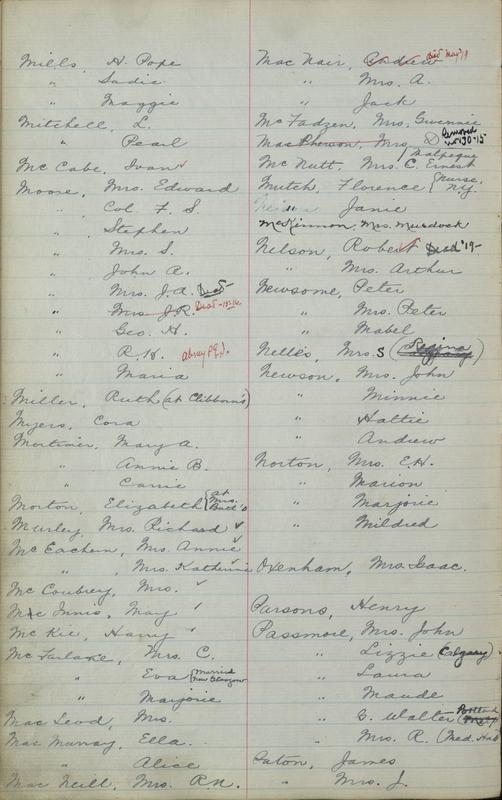 Mills, H. Pope
" Sadie
" Maggie
Mitchell, L.
" Pearl
Mc Cabe, Ivan
Moore, Mrs. Edward
" Col. F. S.
" Stephen
" Mrs. S.
" John A.
" Mrs. J.A. Died
" Mrs. J.R. Dead
" Geo. H.
" R. H.
" Maria
Miller, Ruth (at Clibborn's)
Myers, Cora
Mortimer, Mary A.
" Annie B.
" Carrie
Morton, Elizabeth (at Mrs.
Murley, Mrs. Richard ✓
Mc Eachern, Mrs. Annie ✓
" Mrs. Katherine
Mc Coubrey, Mrs. ✓
Mc Innis, May
Mc Kie, Harry
Mc Farlane, Mrs. C.
" Eva (married New Glasgow
" Marjorie
Mac Leod, Mrs.
Mac Murray, Ella.
" Alice
Mac Neill, Mrs. R.N.
Mac Nair, Andrew Died May '19
" Mrs. A.
" Jack
Mc Fadzen, Mrs. Gwennie
Mac Pherson, Mrs D Removed
Mc Nutt, Mrs. C. Ernest / Malpeque
Mutch, Florence (Nurse. N.Y.
" Janie
McKinnon, Mrs. Murdock
Nelson, Robert Died '19-
" Mrs. Arthur
Newsome, Peter
" Mrs. Peter
" Mabel
Nelles, Mrs. S (Regina)
Newson, Mrs. John
" Minnie
" Hattie
" Andrew
Norton, Mrs. E.H.
" Marion
" Marjorie
" Mildred
Oxenham, Mrs. Isaac.
Parsons, Henry
Passmore, Mrs. John
" Lizzie (Calgary)
" Laura
" Maude
" G. Walter
" Mrs. R. (Med. Hat)
Paton, James
" Mrs. J.